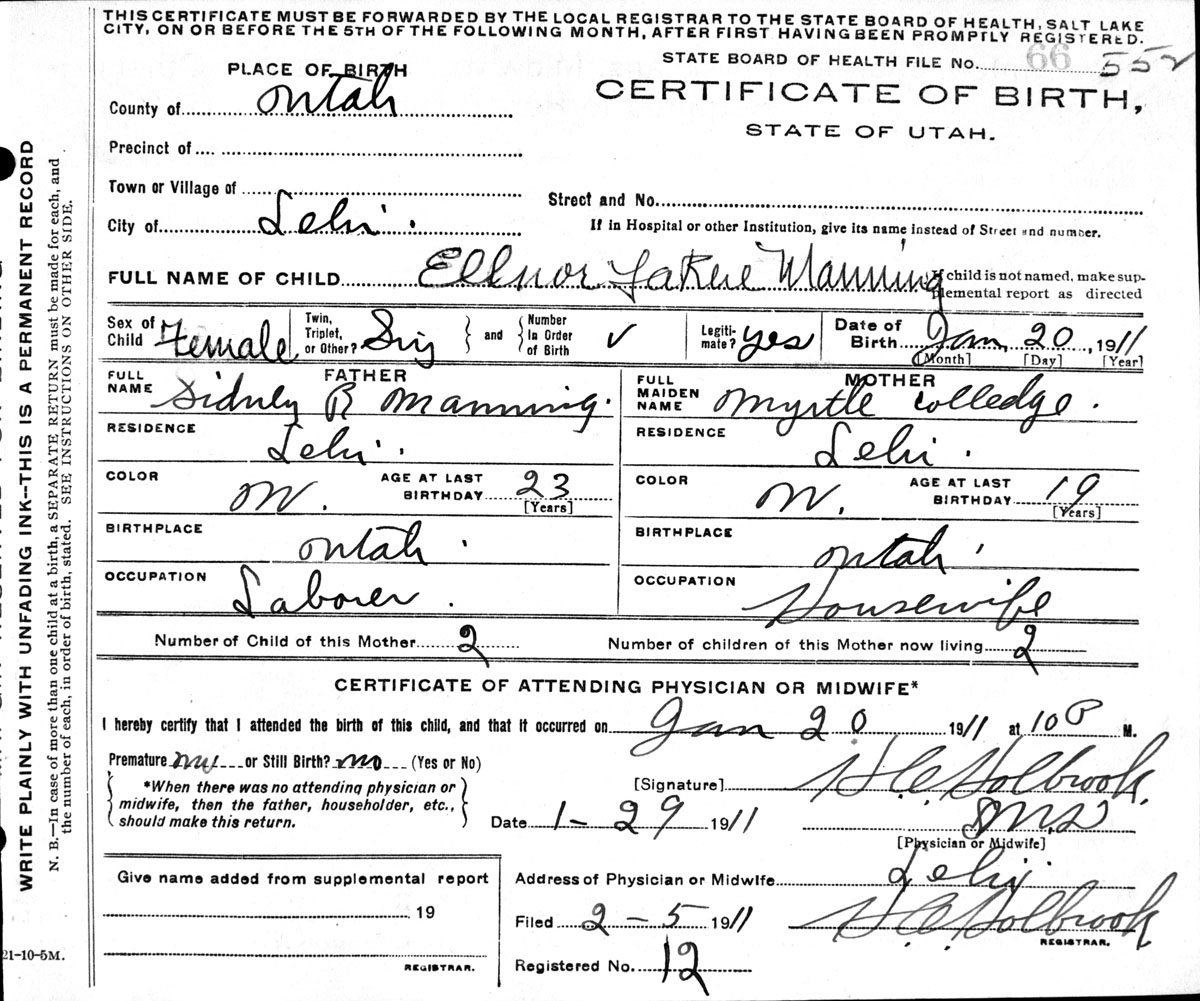 THIS CERTIFICATE MUST BE FORWARDED BY THE LOCAL REGISTRAR TO THE STATE BOARD OF HEALTH, SALT LAKE
CITY, ON OR BEFORE THE 5TH OF THE FOLLOWING MONTH, AFTER FIRST HAVING BEEN PROMPTLY REGISTERED.
STATE BOARD OF HEALTH FILE No. 66 552
PLACE OF BIRTH
CERTIFICATE OF BIRTH,
STATE OF UTAH.
County of Utah
Precinct of
Town or Village of
Street and No.
City of Lehi.
If in Hospital or other Institution, give its name instead of Street and number.
FULL NAME OF CHILD Ellnor LaRue Manning
If child is not named, make sup-
plemental report as directed
Sex of Child Female
Twin, Triplet, or Other? Sing
and Number In Order of Birth ✓
Legiti-mate? yes
Date of Birth Jan. 20, 1911
[Month] [Day] [Year]
FATHER
FULL NAME Sidney R Manning.
MOTHER
FULL MAIDEN NAME Myrtle Colledge.
RESIDENCE Lehi.
RESIDENCE Lehi.
COLOR W. AGE AT LAST BIRTHDAY 23 [Years]
COLOR W. AGE AT LAST BIRTHDAY 19 [Years]
BIRTHPLACE Utah.
BIRTHPLACE Utah.
OCCUPATION Laborer.
OCCUPATION Housewife
Number of Child of this Mother 2
Number of children of this Mother now living 2
CERTIFICATE OF ATTENDING PHYSICIAN OR MIDWIFE*
I hereby certify that I attended the birth of this child, and that it occurred on Jan 20 1911 at 10 P M.
Premature no or Still Birth? no (Yes or No)
[Signature] H.C. Holbrook.
*When there was no attending physician or
midwife, then the father, householder, etc.,
should make this return.
Date 1-29 1911
M.D
[Physician or Midwife]
Give name added from supplemental report
19
REGISTRAR.
Address of Physician or Midwife Lehi
Filed 2-5 1911 H.C. Holbrook
REGISTRAR.
Registered No. 12
WRITE PLAINLY WITH UNFADING INK--THIS IS A PERMANENT RECORD
N. B.—In case of more than one child at a birth, a SEPARATE RETURN must be made for each, and
the number of each, in order of birth, stated. SEE INSTRUCTIONS ON OTHER SIDE.
21-10-5M.